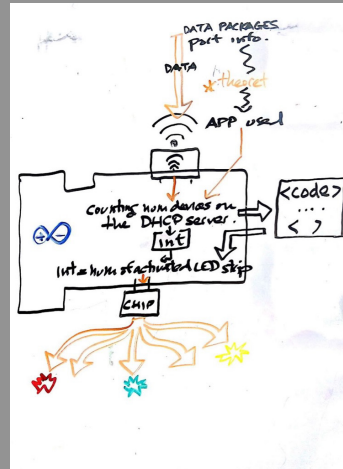 DATA PACKAGES
part info.
DATA
*theoret
APP used
counting num devices on
the DHCP server.
int
Int = num of activated LED strip
CHIP
<code>
....
< >